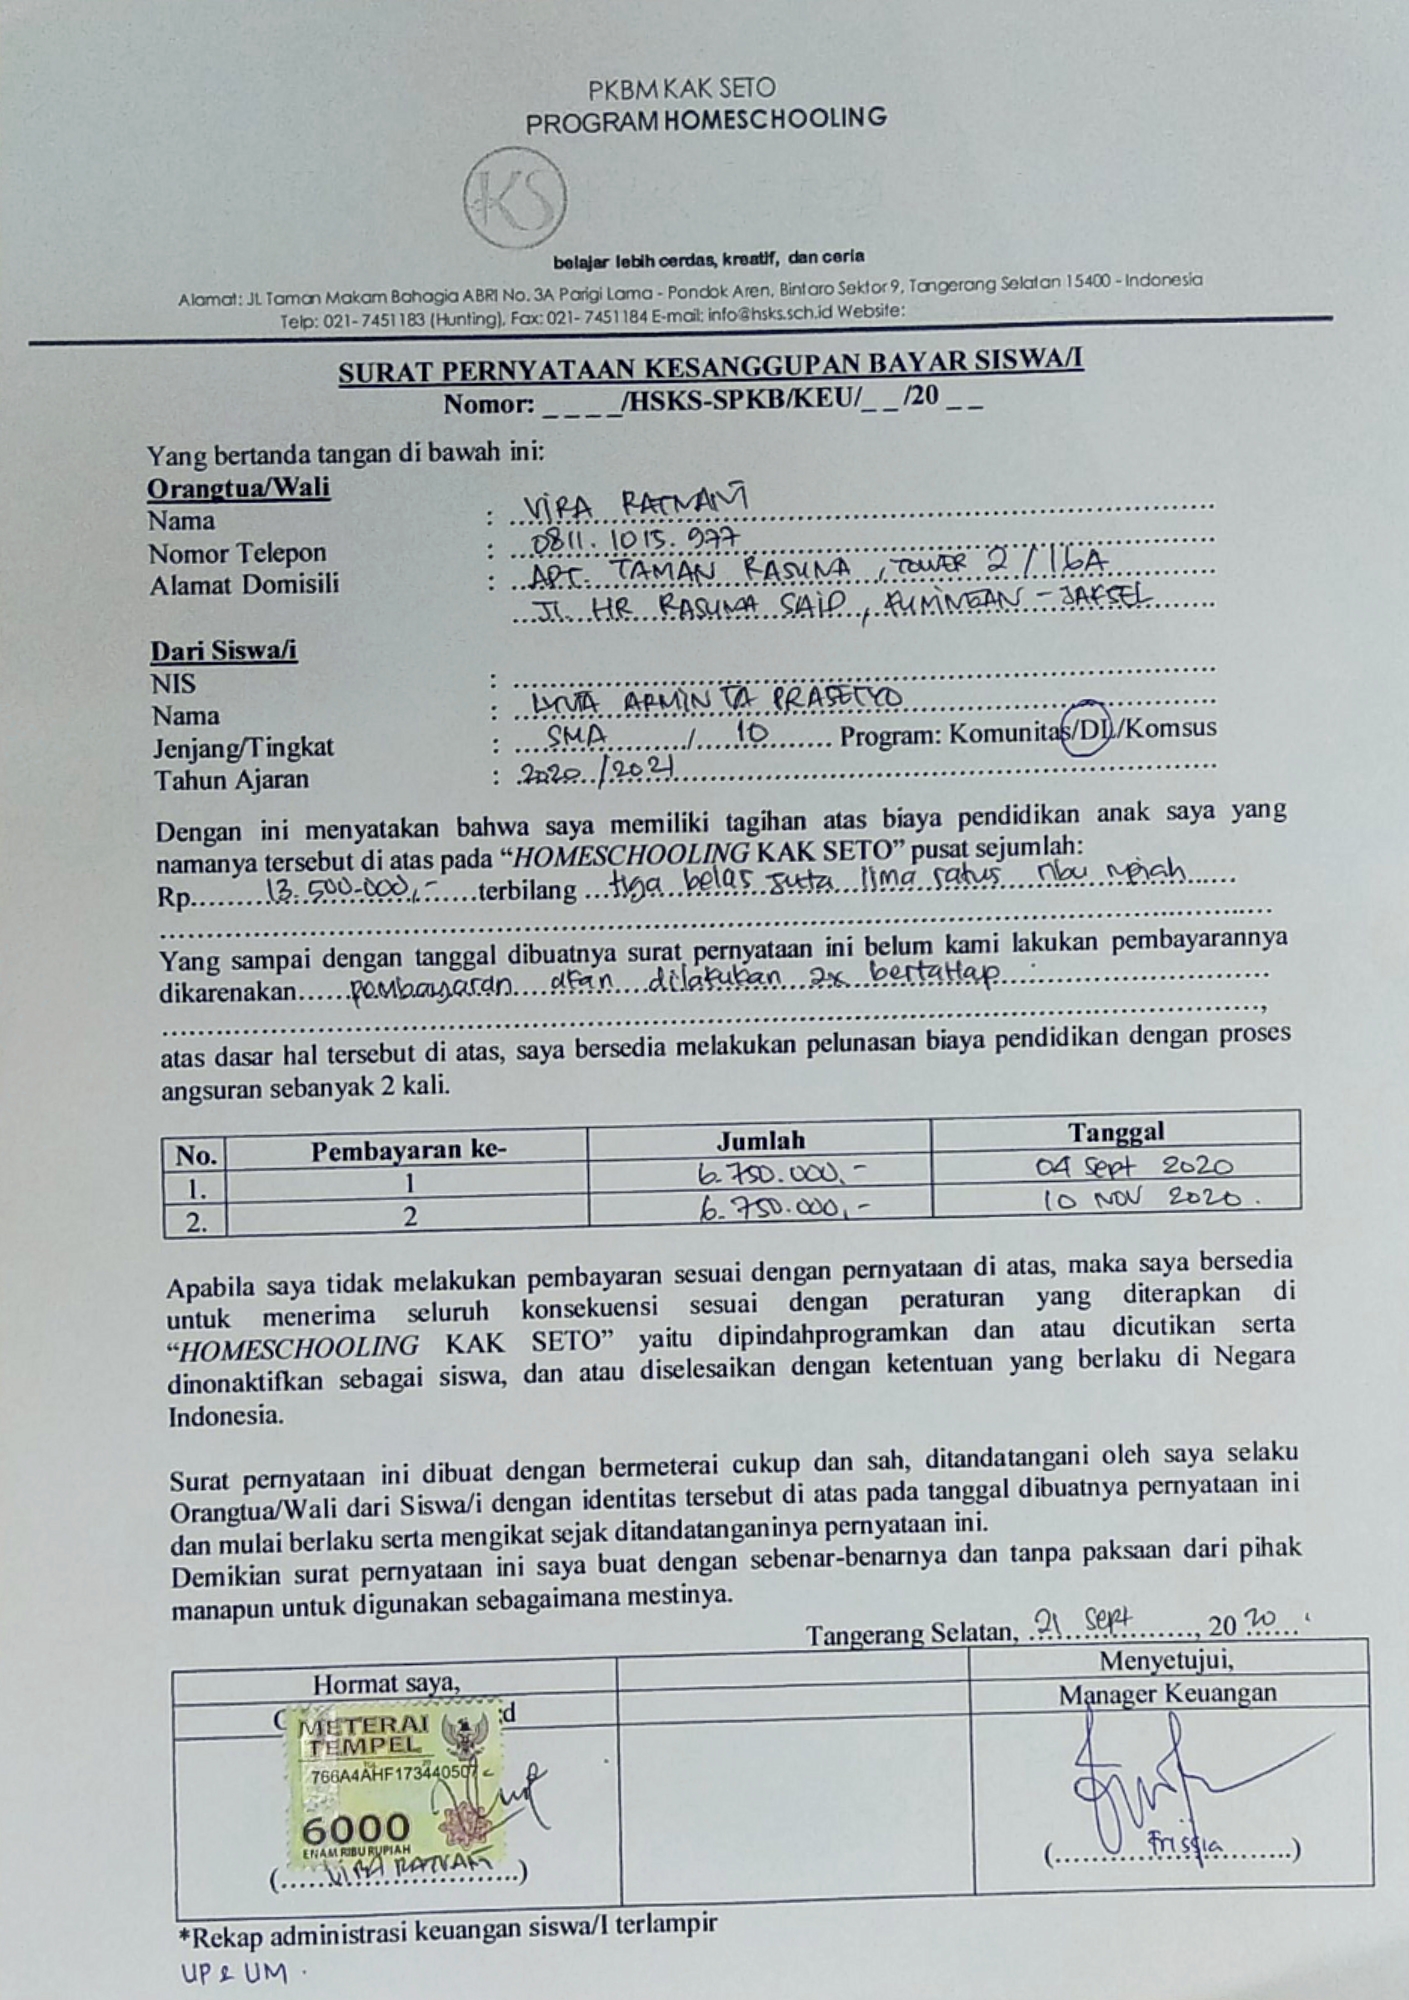 PKBM KAK SETO
PROGRAM HOMESCHOOLING
KS
belajar lebih cerdas, kreatif, dan ceria
Alamat: Jl. Taman Makam Bahagia ABRI No. 3A Parigi Lama - Pondok Aren, Bintaro Sektor 9, Tangerang Selatan 15400 - Indonesia
Telp: 021- 7451183 (Hunting), Fax: 021- 7451184 E-mail: info@hsks.sch.id Website:
SURAT PERNYATAAN KESANGGUPAN BAYAR SISWA/I
Nomor: _ _ _ _/HSKS-SPKB/KEU/_ _ /20 _ _
Yang bertanda tangan di bawah ini:
Orangtua/Wali
Nama : VIRA RATNANI
Nomor Telepon : 0811.1015.977
Alamat Domisili : APT. TAMAN RASUNA, TOWER 2/16A
Jl. HR RASUNA SAID, KUNINGAN - JAKSEL
Dari Siswa/i
NIS :
Nama : ARMINTA PRASETYO
Jenjang/Tingkat : SMA / 10 Program: Komunitas/DL/Komsus
Tahun Ajaran : 2020/2021
Dengan ini menyatakan bahwa saya memiliki tagihan atas biaya pendidikan anak saya yang
namanya tersebut di atas pada “HOMESCHOOLING KAK SETO” pusat sejumlah:
Rp 13.500.000,- terbilang tiga belas juta lima ratus ribu rupiah
Yang sampai dengan tanggal dibuatnya surat pernyataan ini belum kami lakukan pembayarannya
dikarenakan pembayaran akan dilakukan 2x bertahap
,
atas dasar hal tersebut di atas, saya bersedia melakukan pelunasan biaya pendidikan dengan proses
angsuran sebanyak 2 kali.
No. Pembayaran ke- Jumlah Tanggal
1. 1 6.750.000,- 04 Sept 2020
2. 2 6.750.000,- 10 NOV 2020.
Apabila saya tidak melakukan pembayaran sesuai dengan pernyataan di atas, maka saya bersedia
untuk menerima seluruh konsekuensi sesuai dengan peraturan yang diterapkan di
“HOMESCHOOLING KAK SETO” yaitu dipindahprogramkan dan atau dicutikan serta
dinonaktifkan sebagai siswa, dan atau diselesaikan dengan ketentuan yang berlaku di Negara
Indonesia.
Surat pernyataan ini dibuat dengan bermeterai cukup dan sah, ditandatangani oleh saya selaku
Orangtua/Wali dari Siswa/i dengan identitas tersebut di atas pada tanggal dibuatnya pernyataan ini
dan mulai berlaku serta mengikat sejak ditandatanganinya pernyataan ini.
Demikian surat pernyataan ini saya buat dengan sebenar-benarnya dan tanpa paksaan dari pihak
manapun untuk digunakan sebagaimana mestinya.
Tangerang Selatan, 21 Sept, 2020
Hormat saya, Menyetujui,
Manager Keuangan
METERAI
TEMPEL
766A4AHF173440507
6000
ENAM RIBU RUPIAH
(VIRA RATNANI) (Frissia)
*Rekap administrasi keuangan siswa/I terlampir
UP & UM.